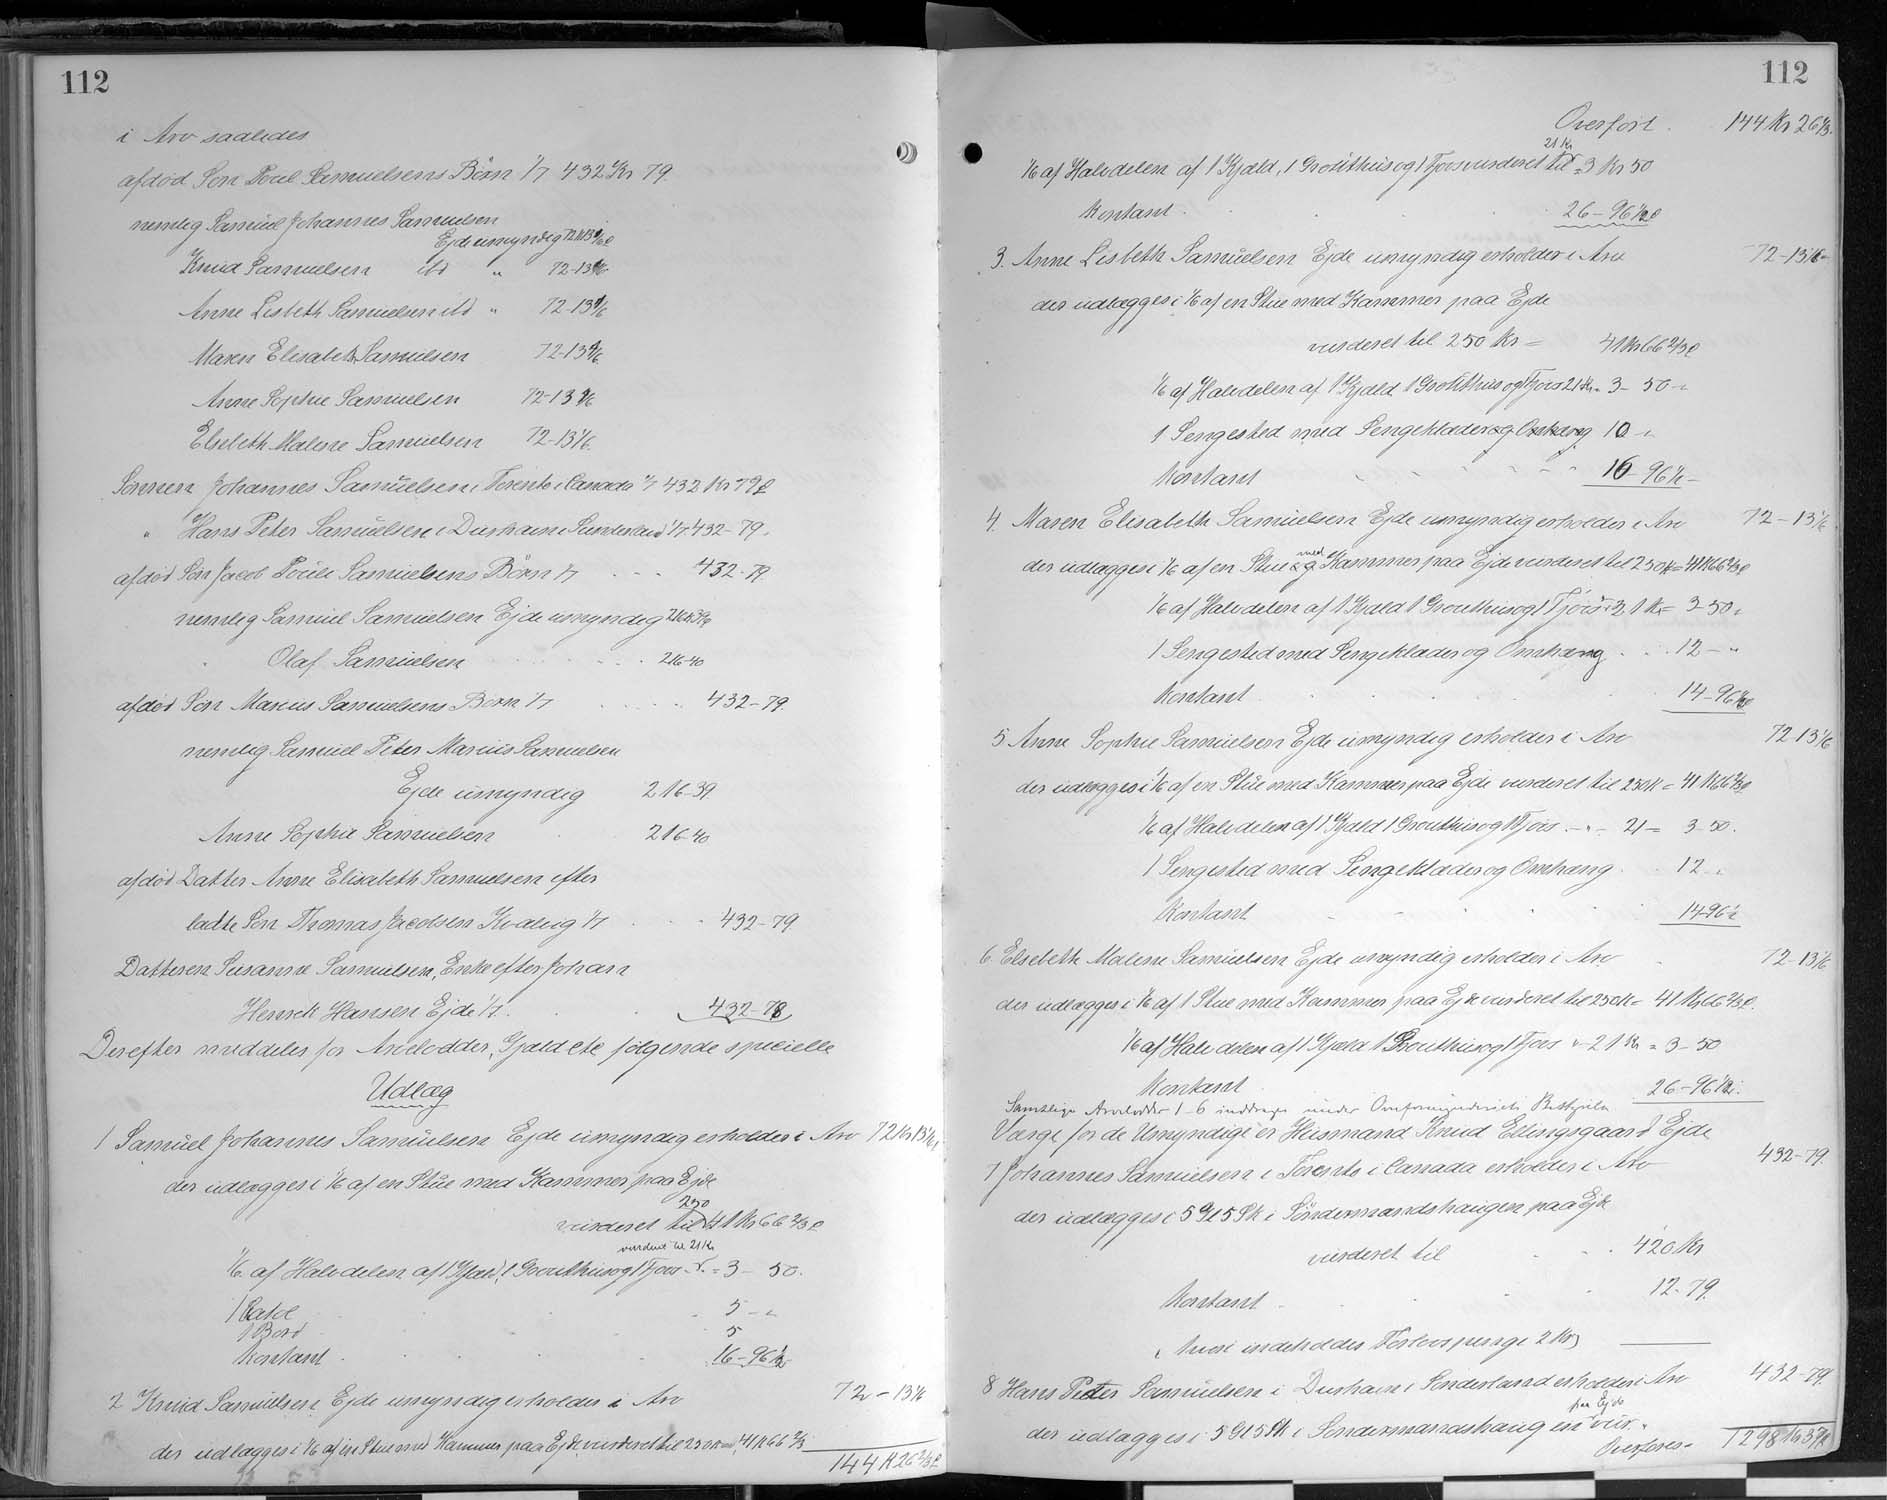 112
i Arv saaledes
afdød Søn Poul Samuelsens Børn 1/7 432 Kr 79.
nemlig Samuel Johannes Samuelsen
Ejde umyndig 72 Kr 13 1/6 Ø
Knud Samuelsen itd " 72-13 1/6
Anne Lisbeth Samuelsen itd " 72-13 1/6
Maren Elisabeth Samuelsen 72-13 1/6
Anne Sophie Samuelsen 72-13 1/6
Elsebeth Malene Samuelsen 72-13 1/6.
Sønnen Johannes Samuelsen i Torento i Canada 1/7 432 Kr 79 Ø
" Hans Peter Samuelsen i Durhain Sunderland 1/7 432-79.
afdød Søn Jacob Poule Samuelsens Børn 1/7 432-79
nemlig Samuel Samuelsen Ejde umyndig 216 Kr 39 Ø
Olaf Samuelsen 216-40
afdød Søn Marius Samuelsens Børn 1/7 432-79.
nemlig Samuel Peter Marius Samuelsen
Ejde umyndig 216-39.
Anne Sophie Samuelsen 216-40
afdød Datter Anne Elisabeth Samuelsen efter
ladte Søn Thomas Jacobsen Kvalvig 1/7 432-79
Datteren Susanne Samuelsen, Enke efter Johan
Henrik Hansen Ejde 1/7. 432-78
Derefter meddeles for Arvelodder, Gjæld etc følgende specielle
Udlæg
1 Samuel Johannes Samuelsen Ejde umyndig erholder i Arv 72 Kr 13 1/6
der udlægges i 1/6 af en Stue med Kammer paa Ejde
250
vurderet til 41 Kr 66 2/3 Ø
vurderet til 21 Kr
1/6 af Halvdelen af 1 Kjæld, 1 Grouthus og 1 Fjøs = 3 - 50.
1 Vatol 5 - "
1 Bord 5
Kontant 16-96 1/2
2 Knud Samuelsen Ejde umyndig erholder i Arv 72-13 1/6
der udlægges i 1/6 af en Stue med Kammer paa Ejde vurderet til 250 Kr 41 K 66 2/3
144 K 26 2/3 Ø
112
Overført. 144 Kr 26 1/3.
21 Kr
1/6 af Halvdelen af 1 Kjæld, 1 Grotithus og 1 Fjøs vurderet til = 3 Kr 50
Kontant 26-96 1/2 Ø
3. Anne Lisbeth Samuelsen Ejde umyndig erholder i Arv 72-13 1/6
der udlægges i 1/6 af en Stue med Kammer paa Ejde
vurderet til 250 Kr = 41 Kr 66 2/3 Ø
1/6 af Halvdelen af 1 Kjæld 1 Grotithus og 1 Fjøs 21 Kr = 3-50 "
1 Sengested med Sengeklæder og Omhæng 10 "
Kontant 16-96 1/2 -
4. Maren Elisabeth Samuelsen Ejde umyndig erholder i Arv 72-13 1/6
der udlægges i 1/6 af en Stue med Kammer paa Ejde vurderet til 250 K = 41 K 66 2/3 Ø
1/6 af Halvdelen af 1 Kjæld 1 Grouthus og 1 Fjøs 21 Kr = 3-50 "
1 Sengested med Sengeklæder og Omhæng 12 - "
Kontant 14-96 1/2
5 Anne Sophie Samuelsen Ejde umyndig erholder i Arv 72-13 1/6
der udlægges i 1/6 af en Stue med Kammer paa Ejde vurderet til 250 K = 41 K 66 2/3 Ø
1/6 af Halvdelen af 1 Kjæld 1 Grouthus og 1 Fjøs - " - 21 = 3-50.
1 Sengested med Sengeklæder og Omhæng 12 "
Kontant 14-96 1/2
6. Elsebeth Malene Samuelsen Ejde umyndig erholder i Arv 72-13 1/6
der udlægges i 1/6 af 1 Stue med Kammer paa Ejde vurderet til 250 K = 41 K 66 2/3 Ø.
1/6 af Halvdelen af 1 Kjæld 1 Grouthus og 1 Fjøs " - 21 Kr = 3-50
Kontant 26-96 1/2.
Samtlige Arvelodder 1-6 inddrages under Overformynderiets Bestyrelse
Værge for de Umyndige er Husmand Knud Ellingsgaard Ejde
7 Johannes Samuelsen i Torento i Canada erholder i Arv 432-79.
der udlægges i 5 Gl 5 Sk i Søndermandshaugen paa Ejde
vurderet til 420 Kr
Kontant 12-79.
(hvori indeholdes Forlovspenge 2 Kr)
8 Hans Peter Samuelsen i Durhain i Sonderland erholder i Arv 432-79.
paa Ejde
der udlægges i 5 Gl 5 Sk i Søndermandshaugen vur-
Overføres - 1298 Kr 37 1/2